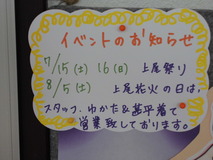 イベントのお知らせ
7/15(土) 16(日) 上尾祭り
8/5(土) 上尾花火の日は、
スタッフ、ゆかた&甚平着て
営業致しております。